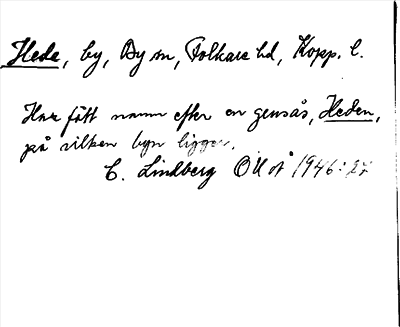 Hede, by, By sn, Folkare hd, Kopp. l.
Har fått namn efter en grusås, Heden,
på vilken byn ligger.
C. Lindberg OUÅ 1946:27